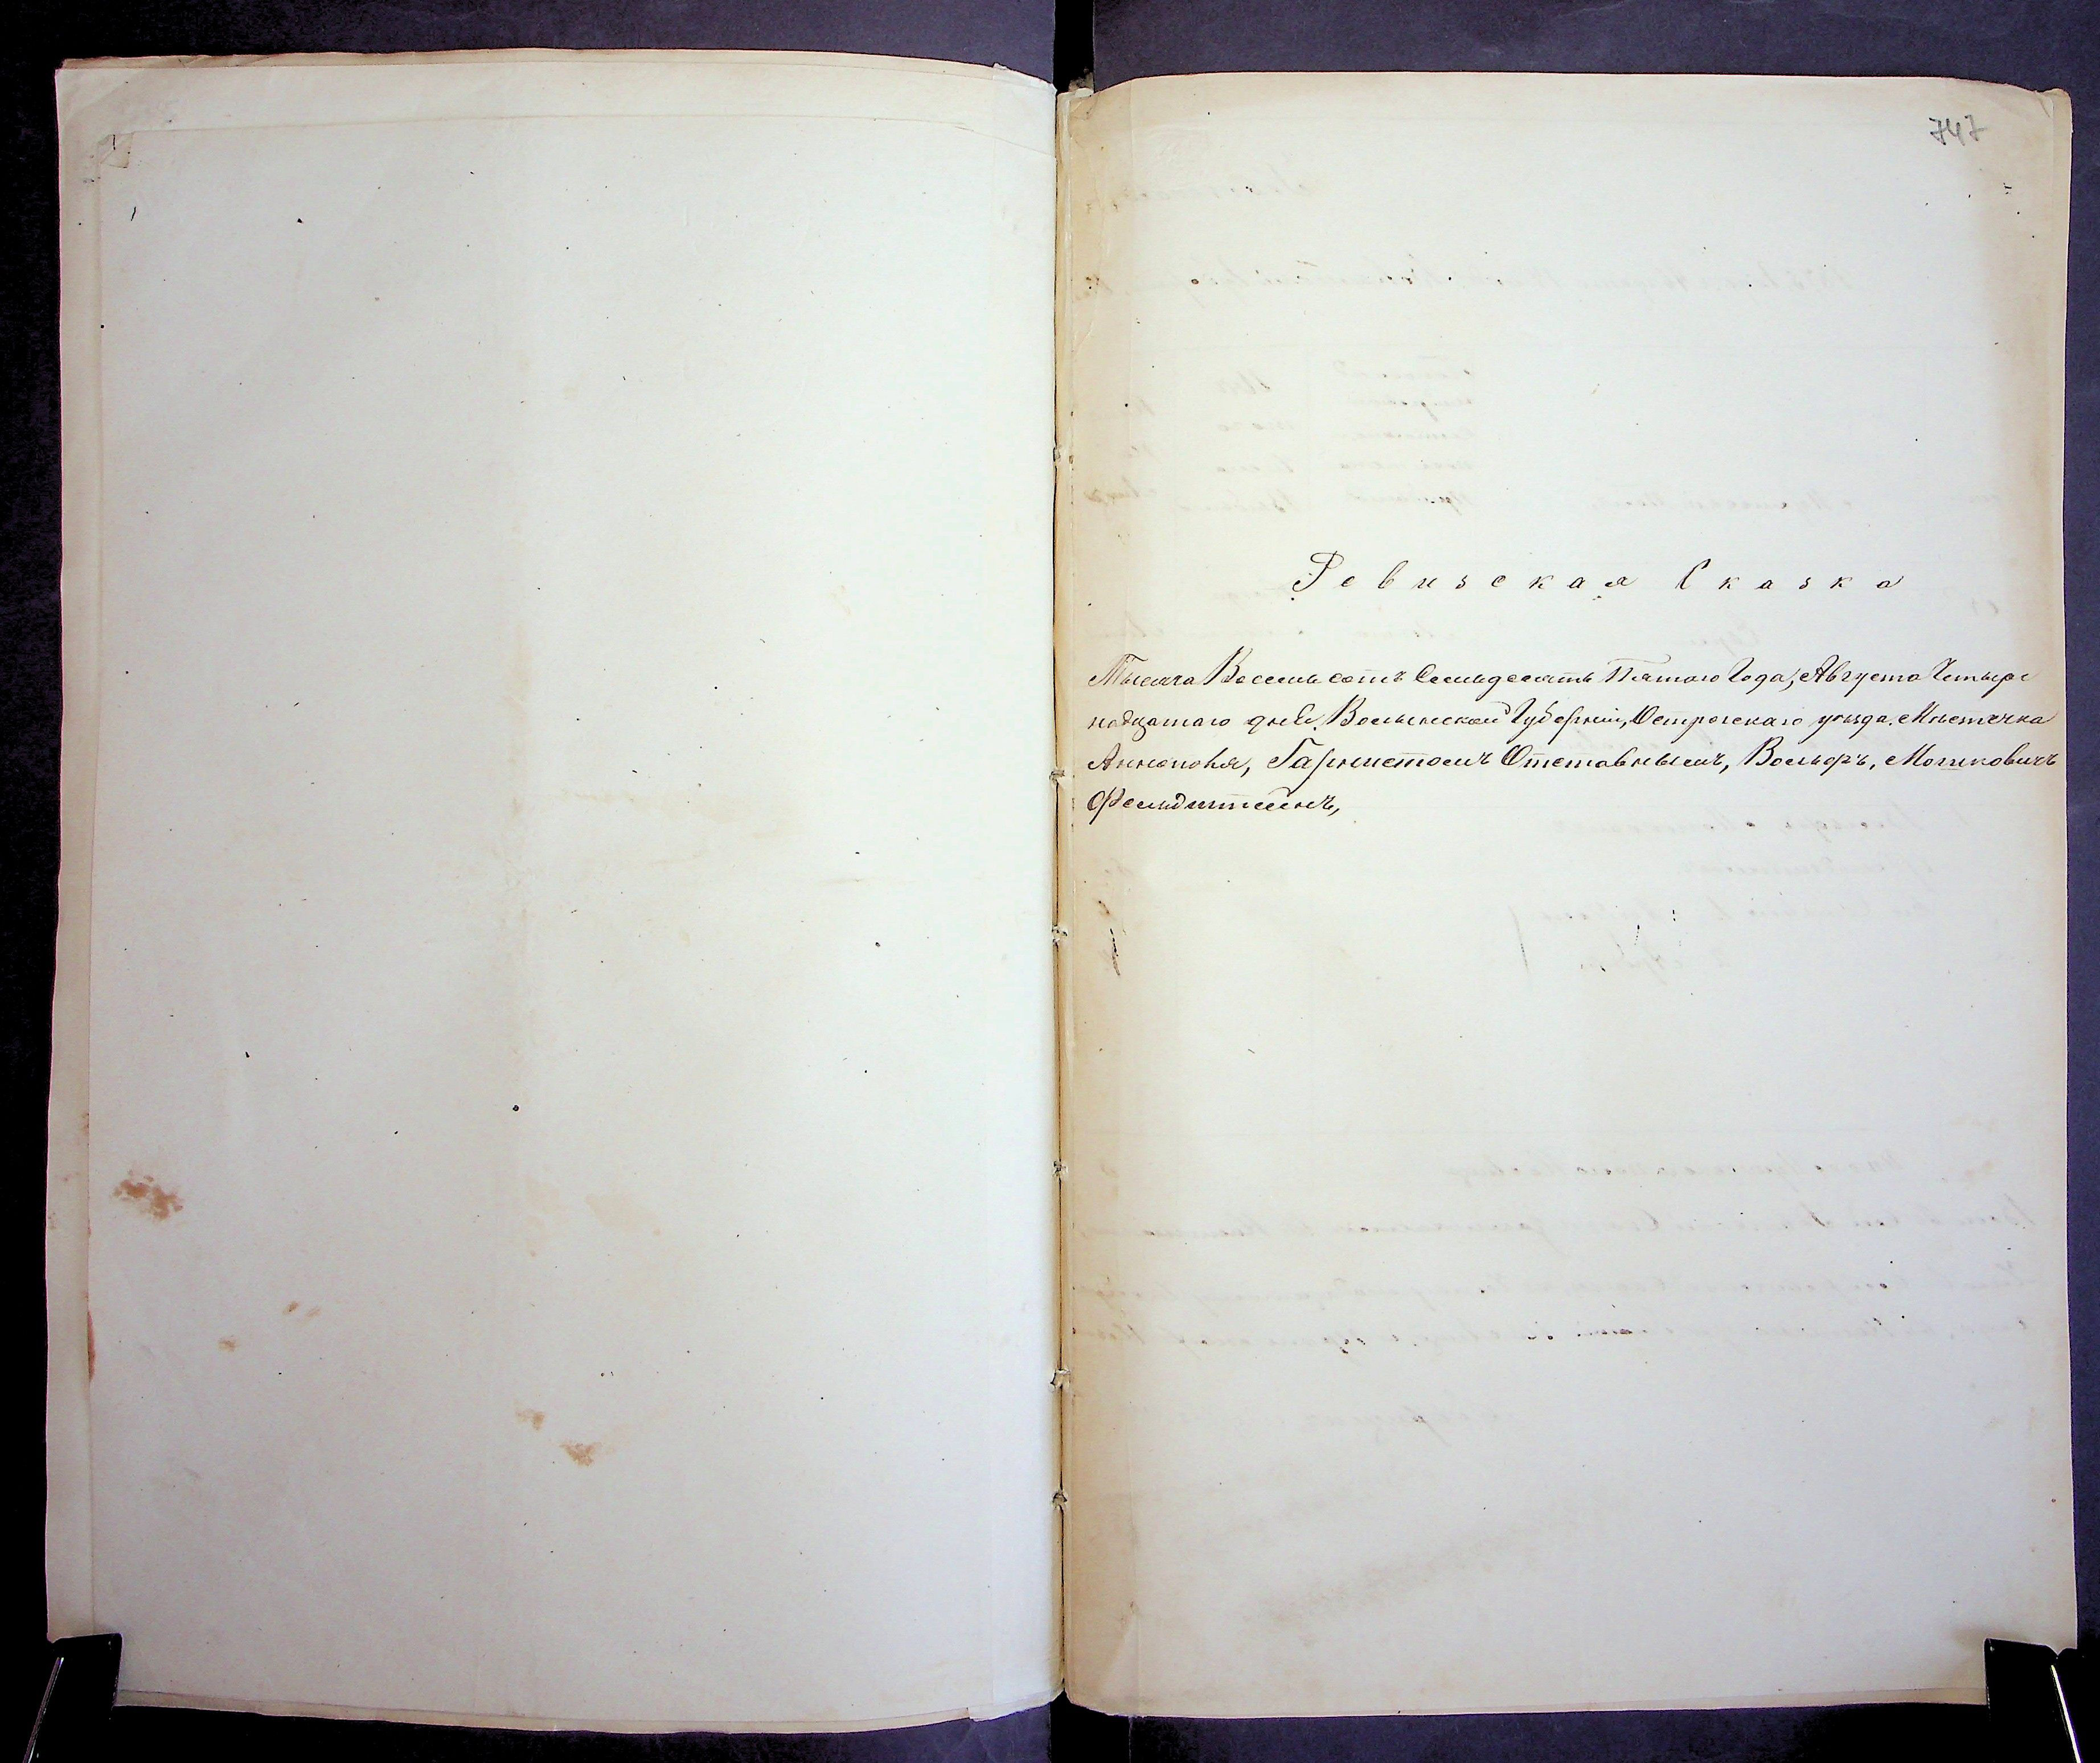 747
Ревизская Сказка
Тысяча Восемь сотъ Семьдесятъ Пятого Года, Августа Четыре
надцатаго дня Волынской Губерніи, Острогскаго уѣзда. Мѣстечка
Аннополя, Гарнистомъ Отставнымъ, Вольфъ, Мошковичъ
Фельдштейнъ,